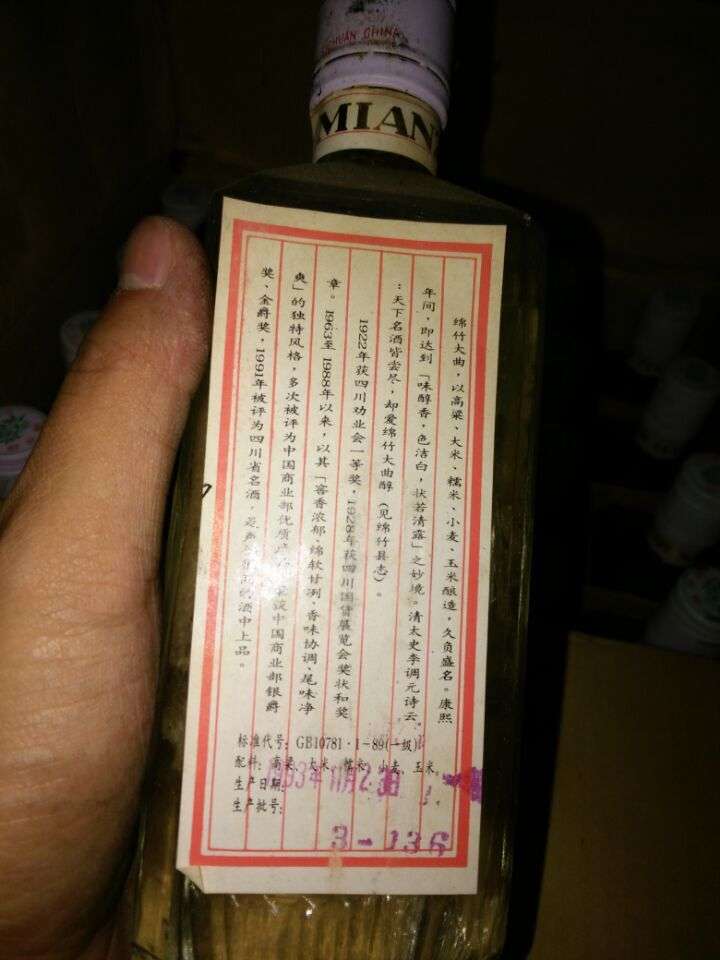 SICHUAN CHINA
MIAN
绵竹大曲，以高粱、大米、糯米、小麦、玉米酿造，久负盛名。康熙
年间，即达到「味醇香，色洁白，状若清露」之妙境。清太史李调元诗云
：天下名酒皆尝尽，却爱绵竹大曲醇（见绵竹县志）。
1922年获四川劝业会一等奖，1928年获四川国货展览会奖状和奖
章。1963至1988年以来，以其「窖香浓郁、绵软甘冽、香味协调、尾味净
爽」的独特风格，多次被评为中国商业部优质产品，荣获中国商业部银爵
奖、金爵奖，1991年被评为四川省名酒，酒中上品。
标准代号：GB10781·1-89(一级)
配料：高粱、大米、糯米、小麦、玉米。
生产日期：1993年11月23日
生产批号：
3-136